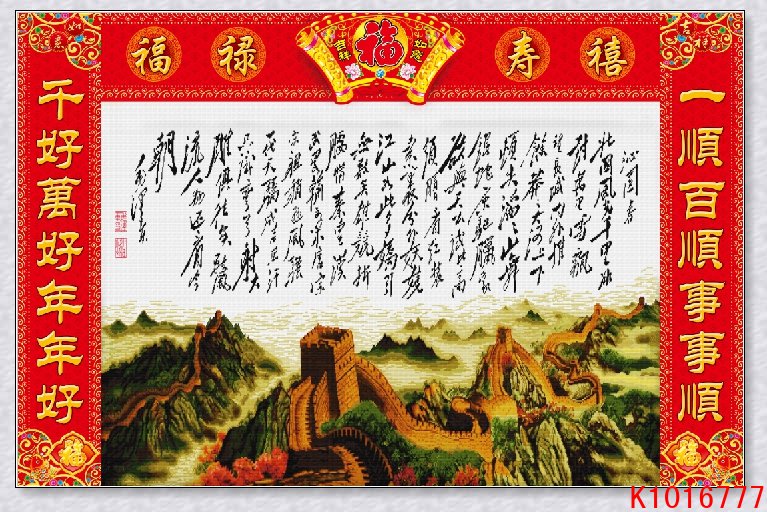 福 禄 吉祥 福 如意 寿 禧
一順百順事事順
千好萬好年年好
沁园春
北国风光千里冰
封万里雪飘
望长城内外惟
餘莽莽大河上下
顿失滔滔山舞
银蛇原驰腊象
欲与天公试比高
须晴日看红装
素裹分外妖娆
江山如此多娇引
无数英雄竞折
腰惜秦皇汉
武略输文采唐宗
宋祖稍逊风骚
一代天骄成吉思汗
只识弯弓射大
雕俱往矣数风
流人物还看今
朝
毛泽东
福
福
K1016777